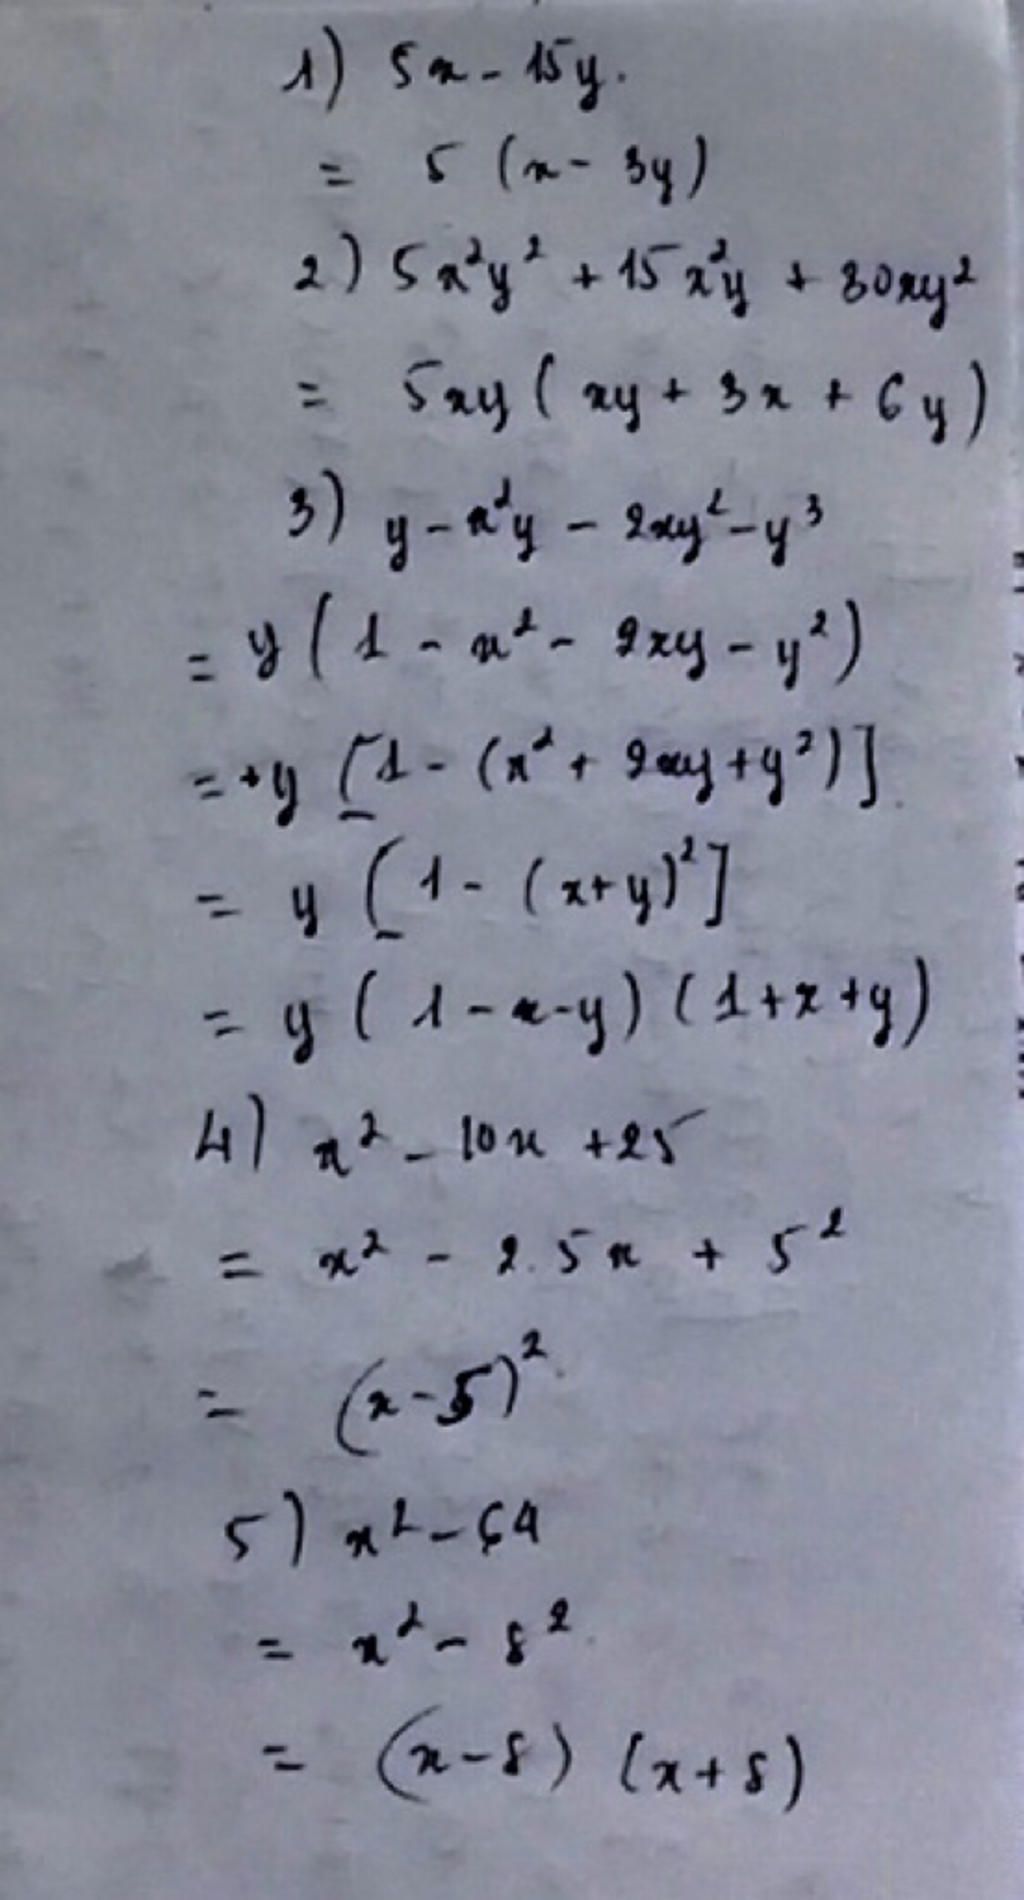 1) 5x - 15y.
= 5 (x - 3y)
2) 5x²y² + 15x²y + 30xy²
= 5xy ( xy + 3x + 6y)
3) y - x²y - 2xy² - y³
= y ( 1 - x² - 2xy - y²)
= +y [1 - (x² + 2xy + y²)]
= y [1 - (x+y)²]
= y ( 1 - x - y) (1 + x + y)
4) x² - 10x + 25
= x² - 2.5x + 5²
= (x - 5)²
5) x² - 64
= x² - 8²
= (x - 8) (x + 8)